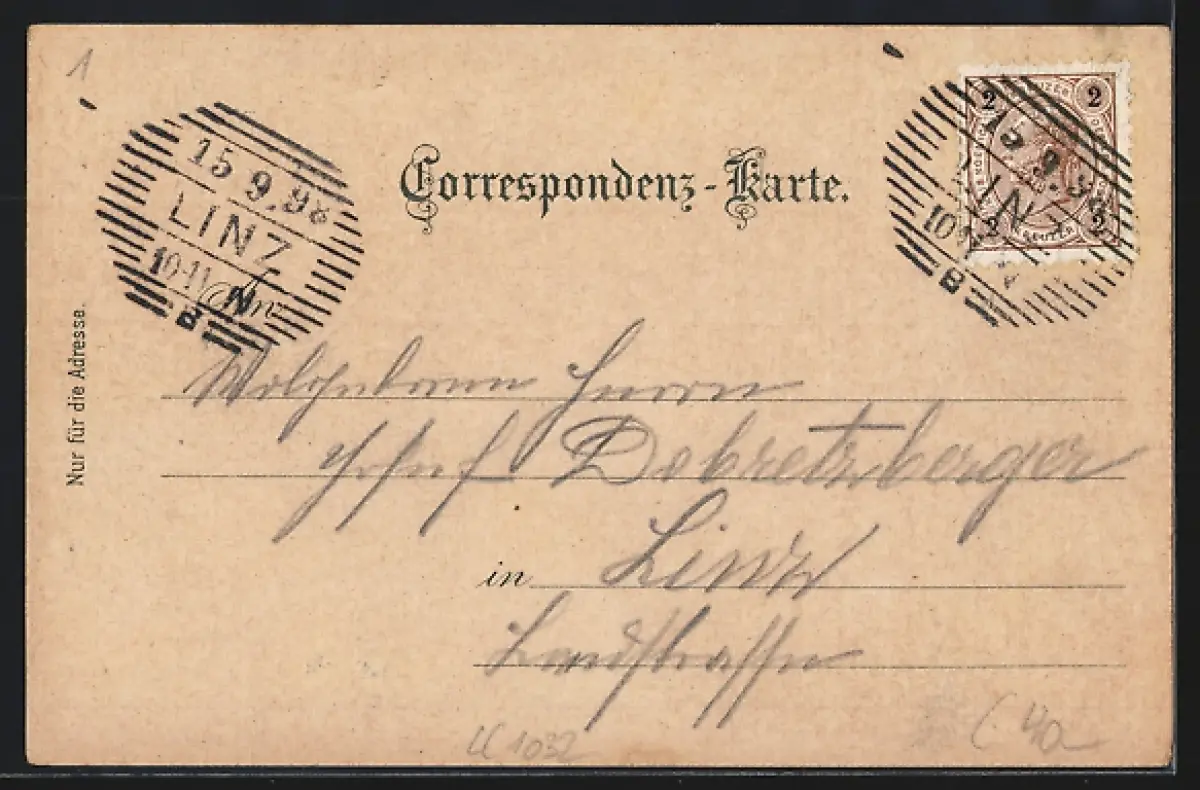 1
15 9.98
LINZ
10-11 N
B
Correspondenz-Karte.
2 2
15 9.
LIN
10
2 2
B
Nur für die Adresse.
An
Wohlgeboren Herrn
Josef Dobretzberger
in Linz
Landstrasse
1032